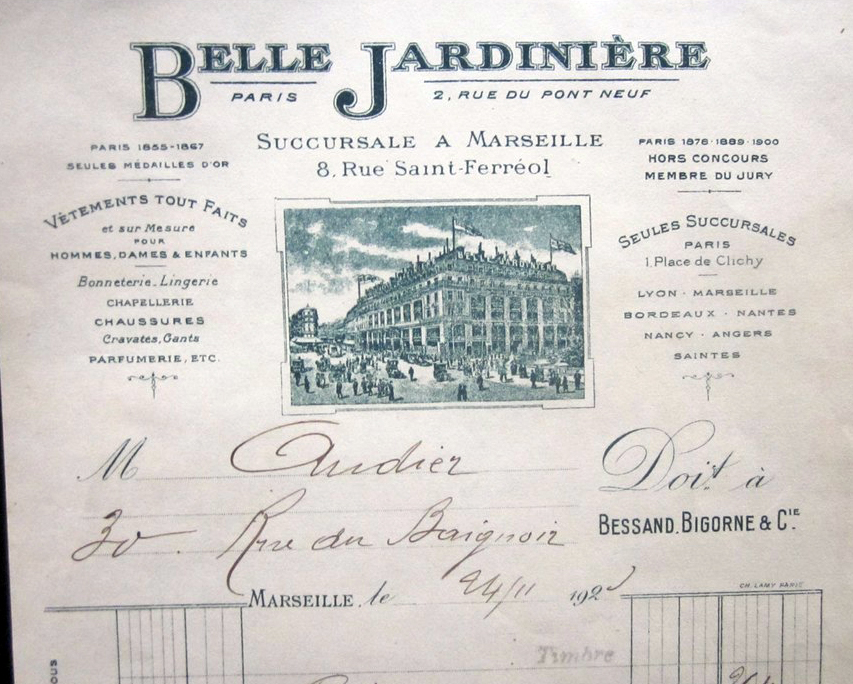 BELLE JARDINIÈRE
PARIS
2, RUE DU PONT NEUF
SUCCURSALE A MARSEILLE
8, Rue Saint-Ferréol
PARIS 1855-1867
SEULES MÉDAILLES D'OR
VÊTEMENTS TOUT FAITS
et sur Mesure
POUR
HOMMES, DAMES & ENFANTS
Bonneterie. Lingerie
CHAPELLERIE
CHAUSSURES
Cravates, Gants
PARFUMERIE, ETC.
PARIS 1878·1889·1900
HORS CONCOURS
MEMBRE DU JURY
SEULES SUCCURSALES
PARIS
1, Place de Clichy
LYON · MARSEILLE
BORDEAUX · NANTES
NANCY · ANGERS
SAINTES
M Audier
30. Rue du Baignoir
Doit à
BESSAND, BIGORNE & CIE
MARSEILLE, le 24/11 192
CH. LAMY PARIS
Timbre